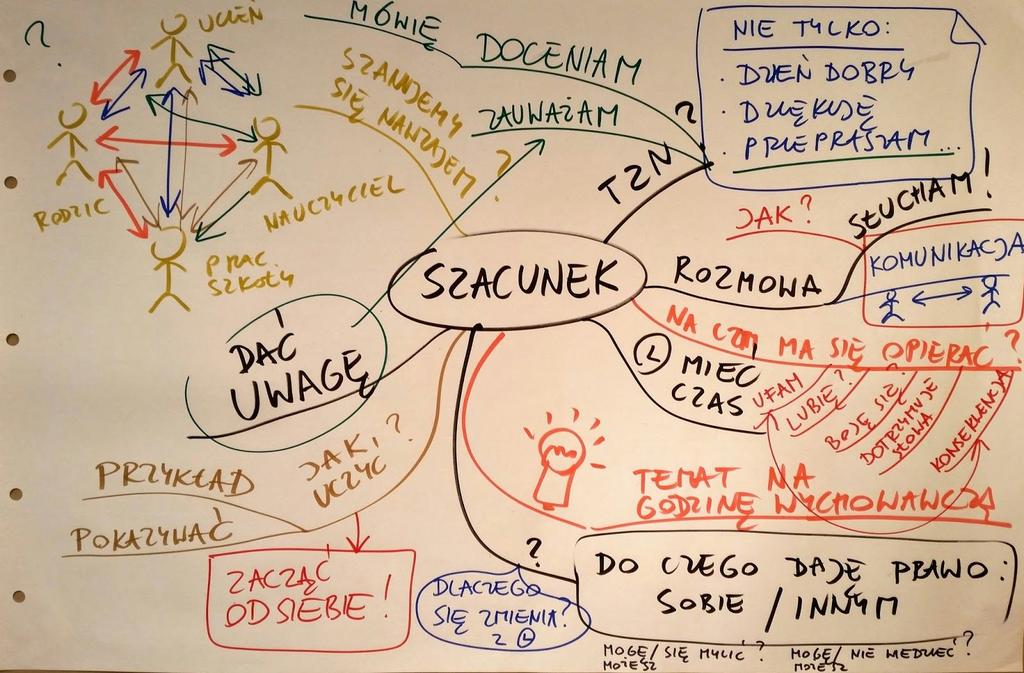 ?
UCZEŃ
RODZIC
NAUCZYCIEL
PRAC.
SZKOŁY
SZANUJEMY
SIĘ NAWZAJEM ?
MÓWIĘ
DOCENIAM
ZAUWAŻAM
?
TZN
NIE TYLKO:
· DZIEŃ DOBRY
· DZIĘKUJĘ
· PRZEPRASZAM...
SZACUNEK
JAK?
SŁUCHAM!
ROZMOWA
KOMUNIKACJA
NA CZYM MA SIĘ OPIERAĆ?
MIEĆ
CZAS
UFAM
LUBIĘ?
BOJĘ SIĘ?
DOTRZYMUJĘ
SŁOWA
KONSEKWENCJA
DAĆ
UWAGĘ
JAK ?
UCZYĆ
PRZYKŁAD
POKAZYWAĆ
ZACZĄĆ
OD SIEBIE!
TEMAT NA
GODZINĘ WYCHOWAWCZĄ
?
DLACZEGO
SIĘ ZMIENIA?
Z
DO CZEGO DAJĘ PRAWO:
SOBIE / INNYM
MOGĘ/ SIĘ MYLIĆ?
MOŻESZ
MOGĘ/ NIE WIEDZIEĆ?
MOŻESZ